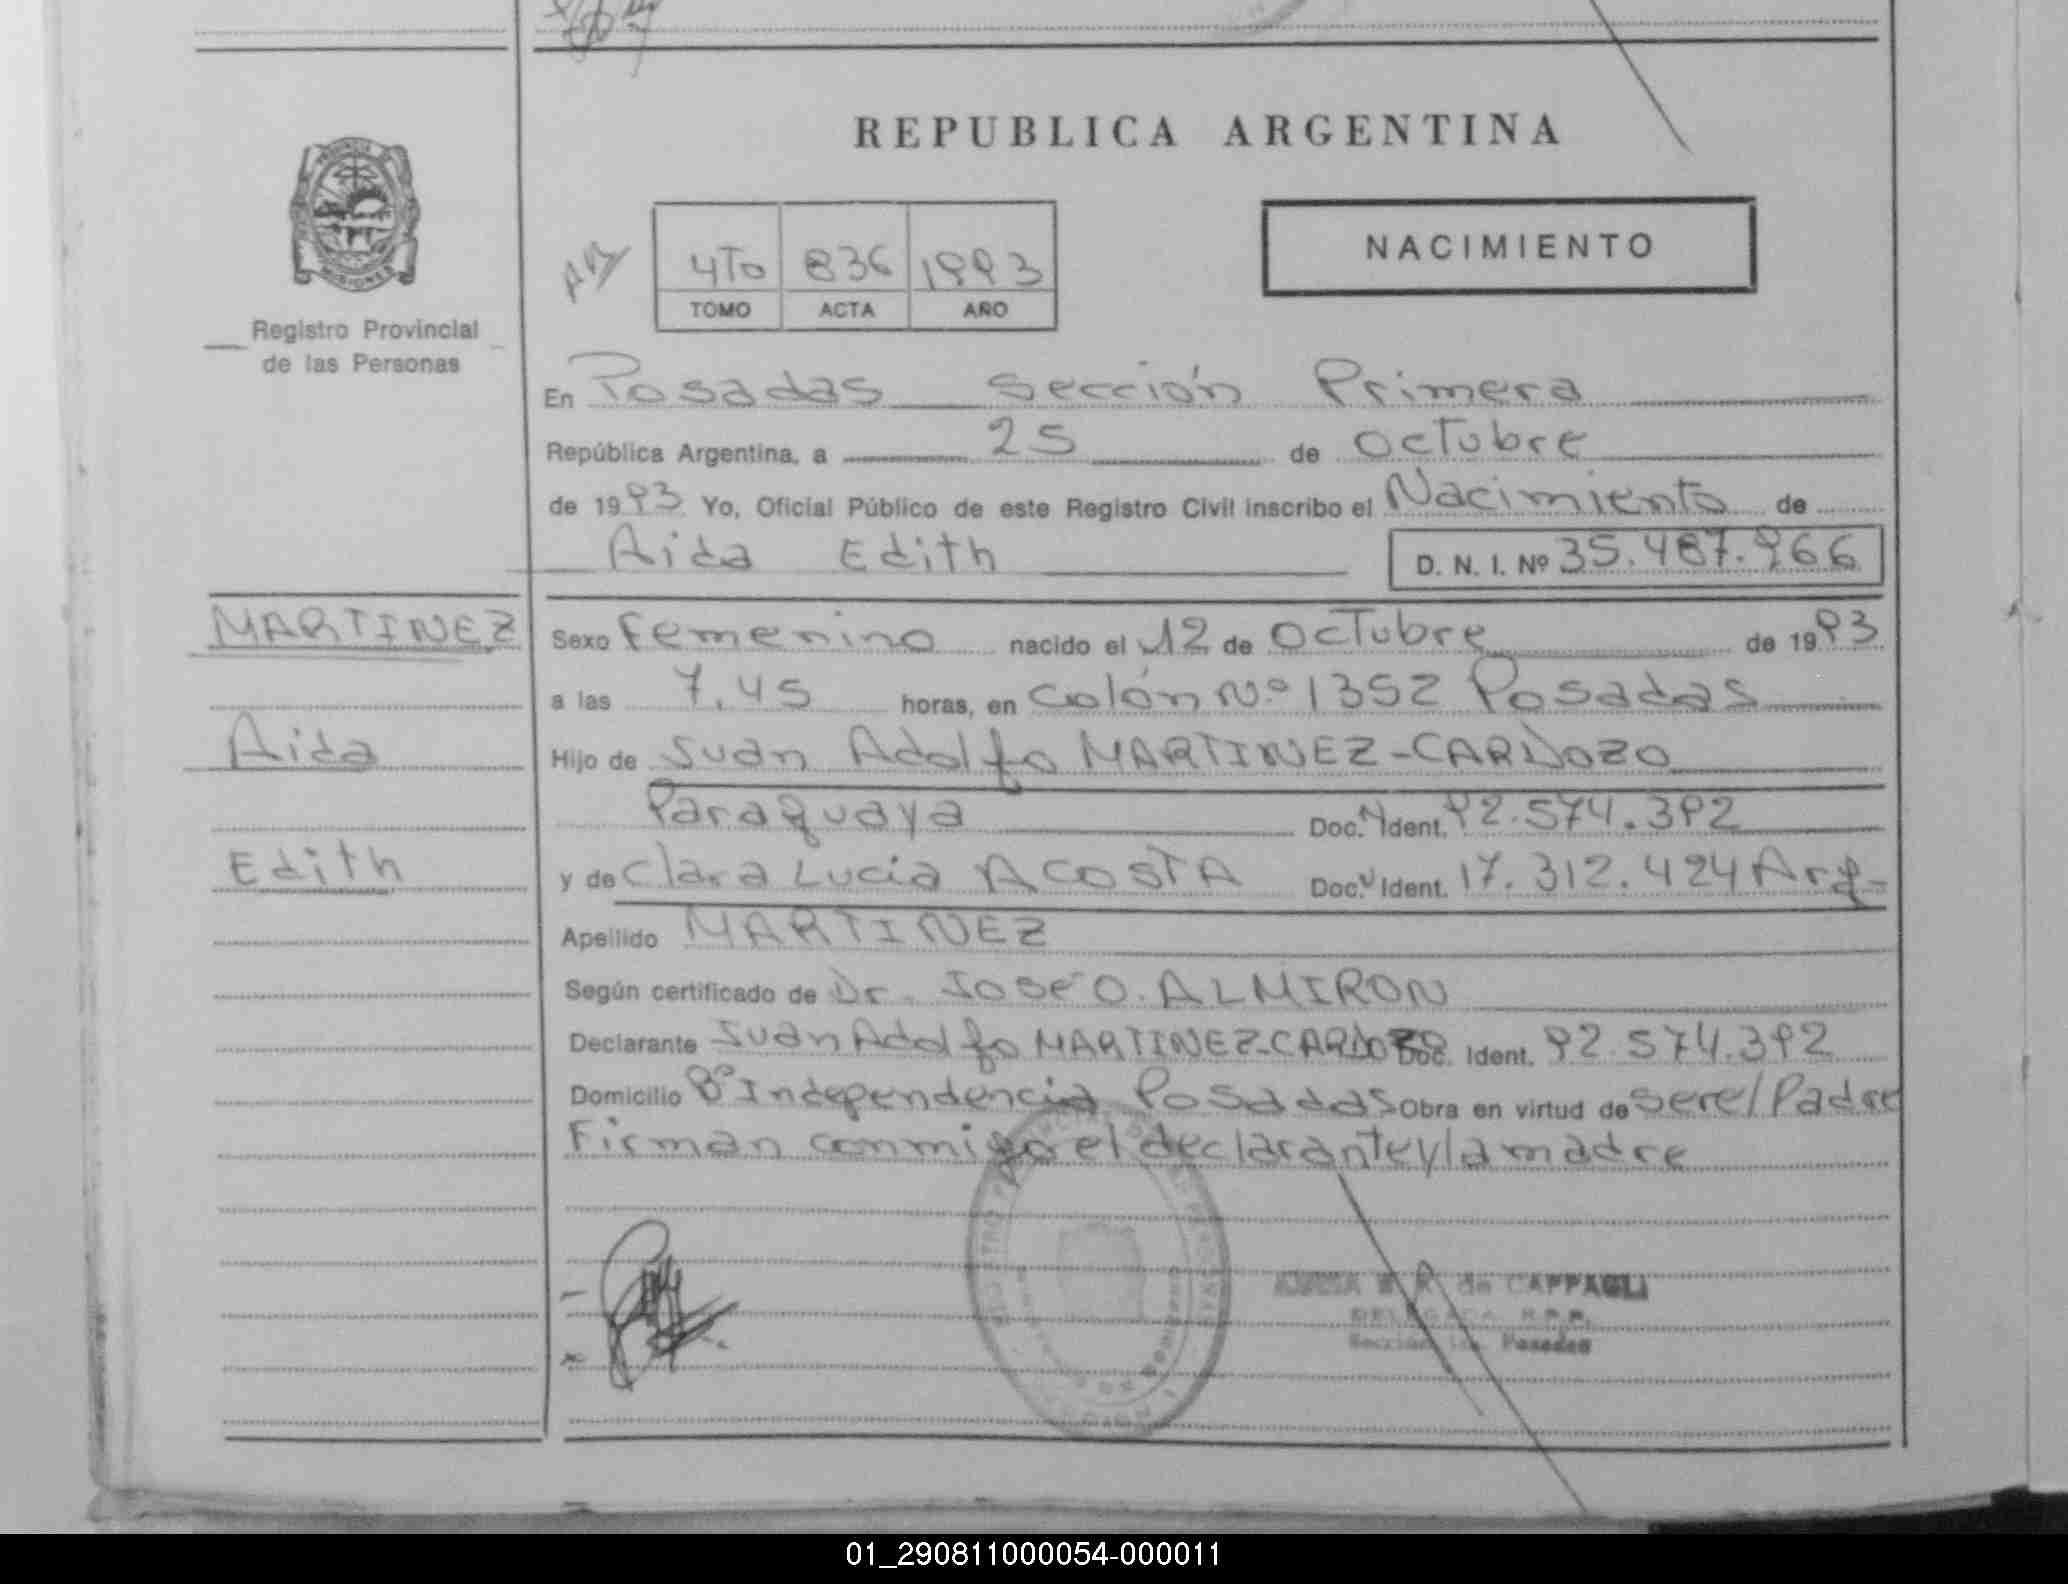 REPUBLICA ARGENTINA
PROVINCIA DE
MISIONES
Registro Provincial
de las Personas
4To 836 1993
TOMO ACTA AÑO
NACIMIENTO
En Posadas sección Primera
República Argentina, a 25 de octubre
de 1993 Yo, Oficial Público de este Registro Civil inscribo el Nacimiento de
Aida Edith D. N. I. Nº 35.487.966
MARTINEZ
Aida
Edith
Sexo Femenino nacido el 12 de Octubre de 1993
a las 7.45 horas, en Colón Nº 1352 Posadas
Hijo de Juan Adolfo MARTINEZ-CARDOZO
Paraguaya Doc. Ident. 92.574.392
y de Clara Lucia ACOSTA Doc. Ident. 17.312.424 Arg-
Apellido MARTINEZ
Según certificado de Dr. José O. ALMIRON
Declarante Juan Adolfo MARTINEZ-CARDOZO Doc. Ident. 92.574.392
Domicilio Bº Independencia Posadas Obra en virtud de ser el Padre
Firman conmigo el declarante y la madre
de CAPPAGLI
DELEGADA R.P.P.
Sección 1a. Posadas
01_290811000054-000011